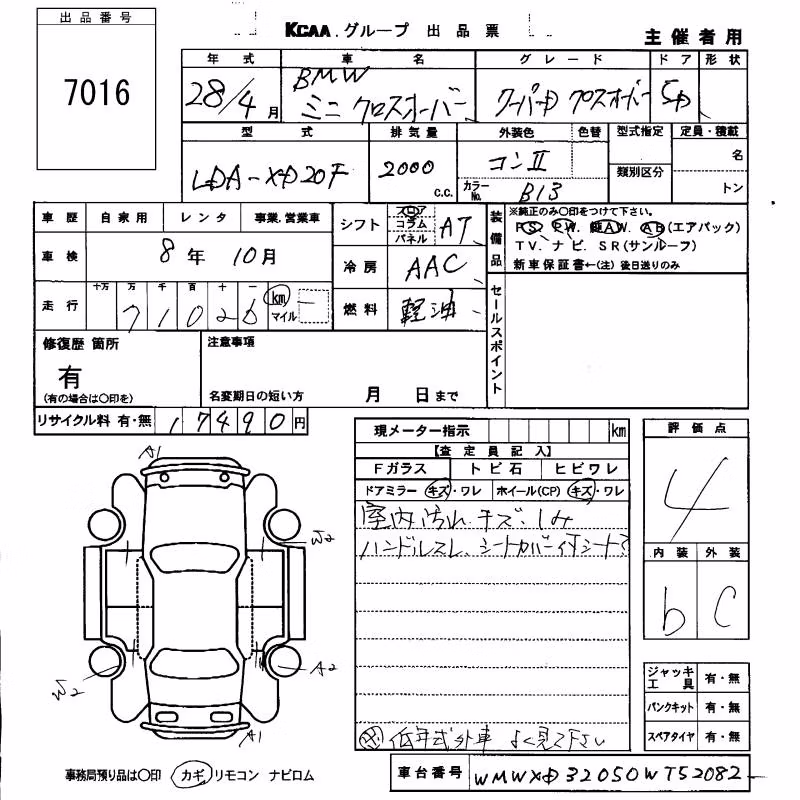 出品番号
7016
KCAA.グループ 出品票
主催者用
年式 車名 グレード ドア 形状
28/4月
BMW
ミニ クロスオーバー
クーパーD クロスオーバー
5D
型式 排気量 外装色 色替 型式指定 定員・積載
LDA-XD20F
2000 c.c.
コンⅡ
カラーNo. B13
類別区分
名
トン
車歴 自家用 レンタ 事業.営業車
車検 8年 10月
走行 十万 万 千 百 十 一
71026 km マイル
シフト フロア コラム パネル AT
冷房 AAC
燃料 軽油
装備品
※純正のみ〇印をつけて下さい。
PS. PW. AW. AB(エアバック)
TV. ナビ. SR(サンルーフ)
新車保証書←(注) 後日送りのみ
セールスポイント
修復歴 箇所
有
(有の場合は〇印を)
注意事項
名変期日の短い方 月 日まで
リサイクル料 有・無 17490円
現メーター指示 km
【査定員記入】
Fガラス トビ石 ヒビワレ
ドアミラー キズ・ワレ ホイール(CP) キズ・ワレ
室内汚れ キズ、しみ
ハンドルスレ、シートカバー付
低年式外車 よく見て下さい
評価点
4
内装 外装
b C
A1
W2
W2
A2
A1
ジャッキ工具 有・無
パンクキット 有・無
スペアタイヤ 有・無
事務局預り品は〇印 カギ リモコン ナビロム
車台番号 WMWXD32050WT52082